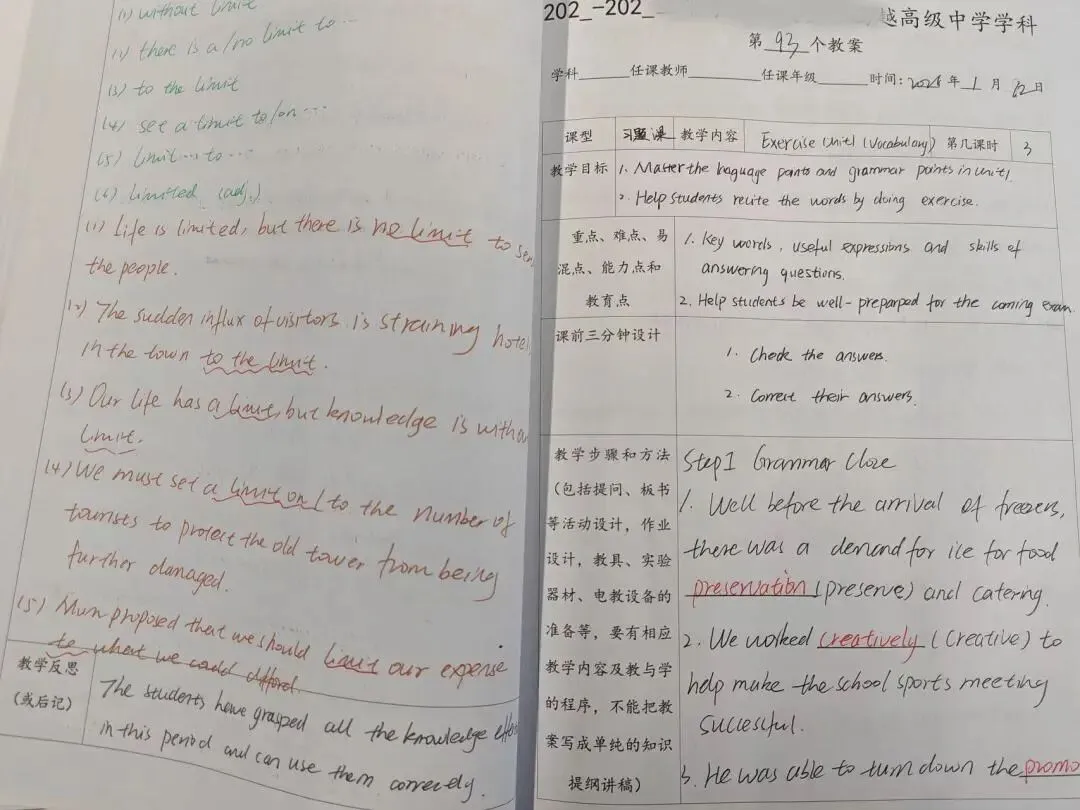 (1) without limit
(2) there is a/no limit to ...
(3) to the limit
(4) set a limit to/on ...
(5) limit ... to ...
(6) limited (adj.)
(1) Life is limited, but there is no limit to
the people.
(2) The sudden influx of visitors is straining
in the town to the limit.
(3) Our life has a limit, but knowledge is
limit.
(4) We must set a limit on / to the number of
tourists to protect the old tower from being
further damaged.
(5) Mum proposed that we should limit our expense
to what we could afford.
教学反思
(或后记)
The students have grasped all the knowledge
in this period and can use them correctly.
202_-202_ 越高级中学学科
第 93 个教案
学科______任课教师________任课年级______时间: 年 1 月 12 日
课型 习题课 教学内容 Exercise Unit1 (Vocabulary) 第几课时 3
教学目标 1. Master the language points and grammar points in Unit1.
2. Help students recite the words by doing exercise.
重点、难点、易
混点、能力点和
教育点
1. Key words, useful expressions and skills of
answering questions.
2. Help students be well-preparped for the coming exam.
课前三分钟设计
1. Check the answers.
2. Correct their answers.
教学步骤和方法
(包括提问、板书
等活动设计，作业
设计，教具、实验
器材、电教设备的
准备等，要有相应
教学内容及教与学
的程序，不能把教
案写成单纯的知识
提纲讲稿)
Step1 Grammar Cloze
1. Well before the arrival of freezers,
there was a demand for ice for food
preservation (preserve) and catering.
2. We worked creatively (creative) to
help make the school sports meeting
successful.
3. He was able to turn down the promo